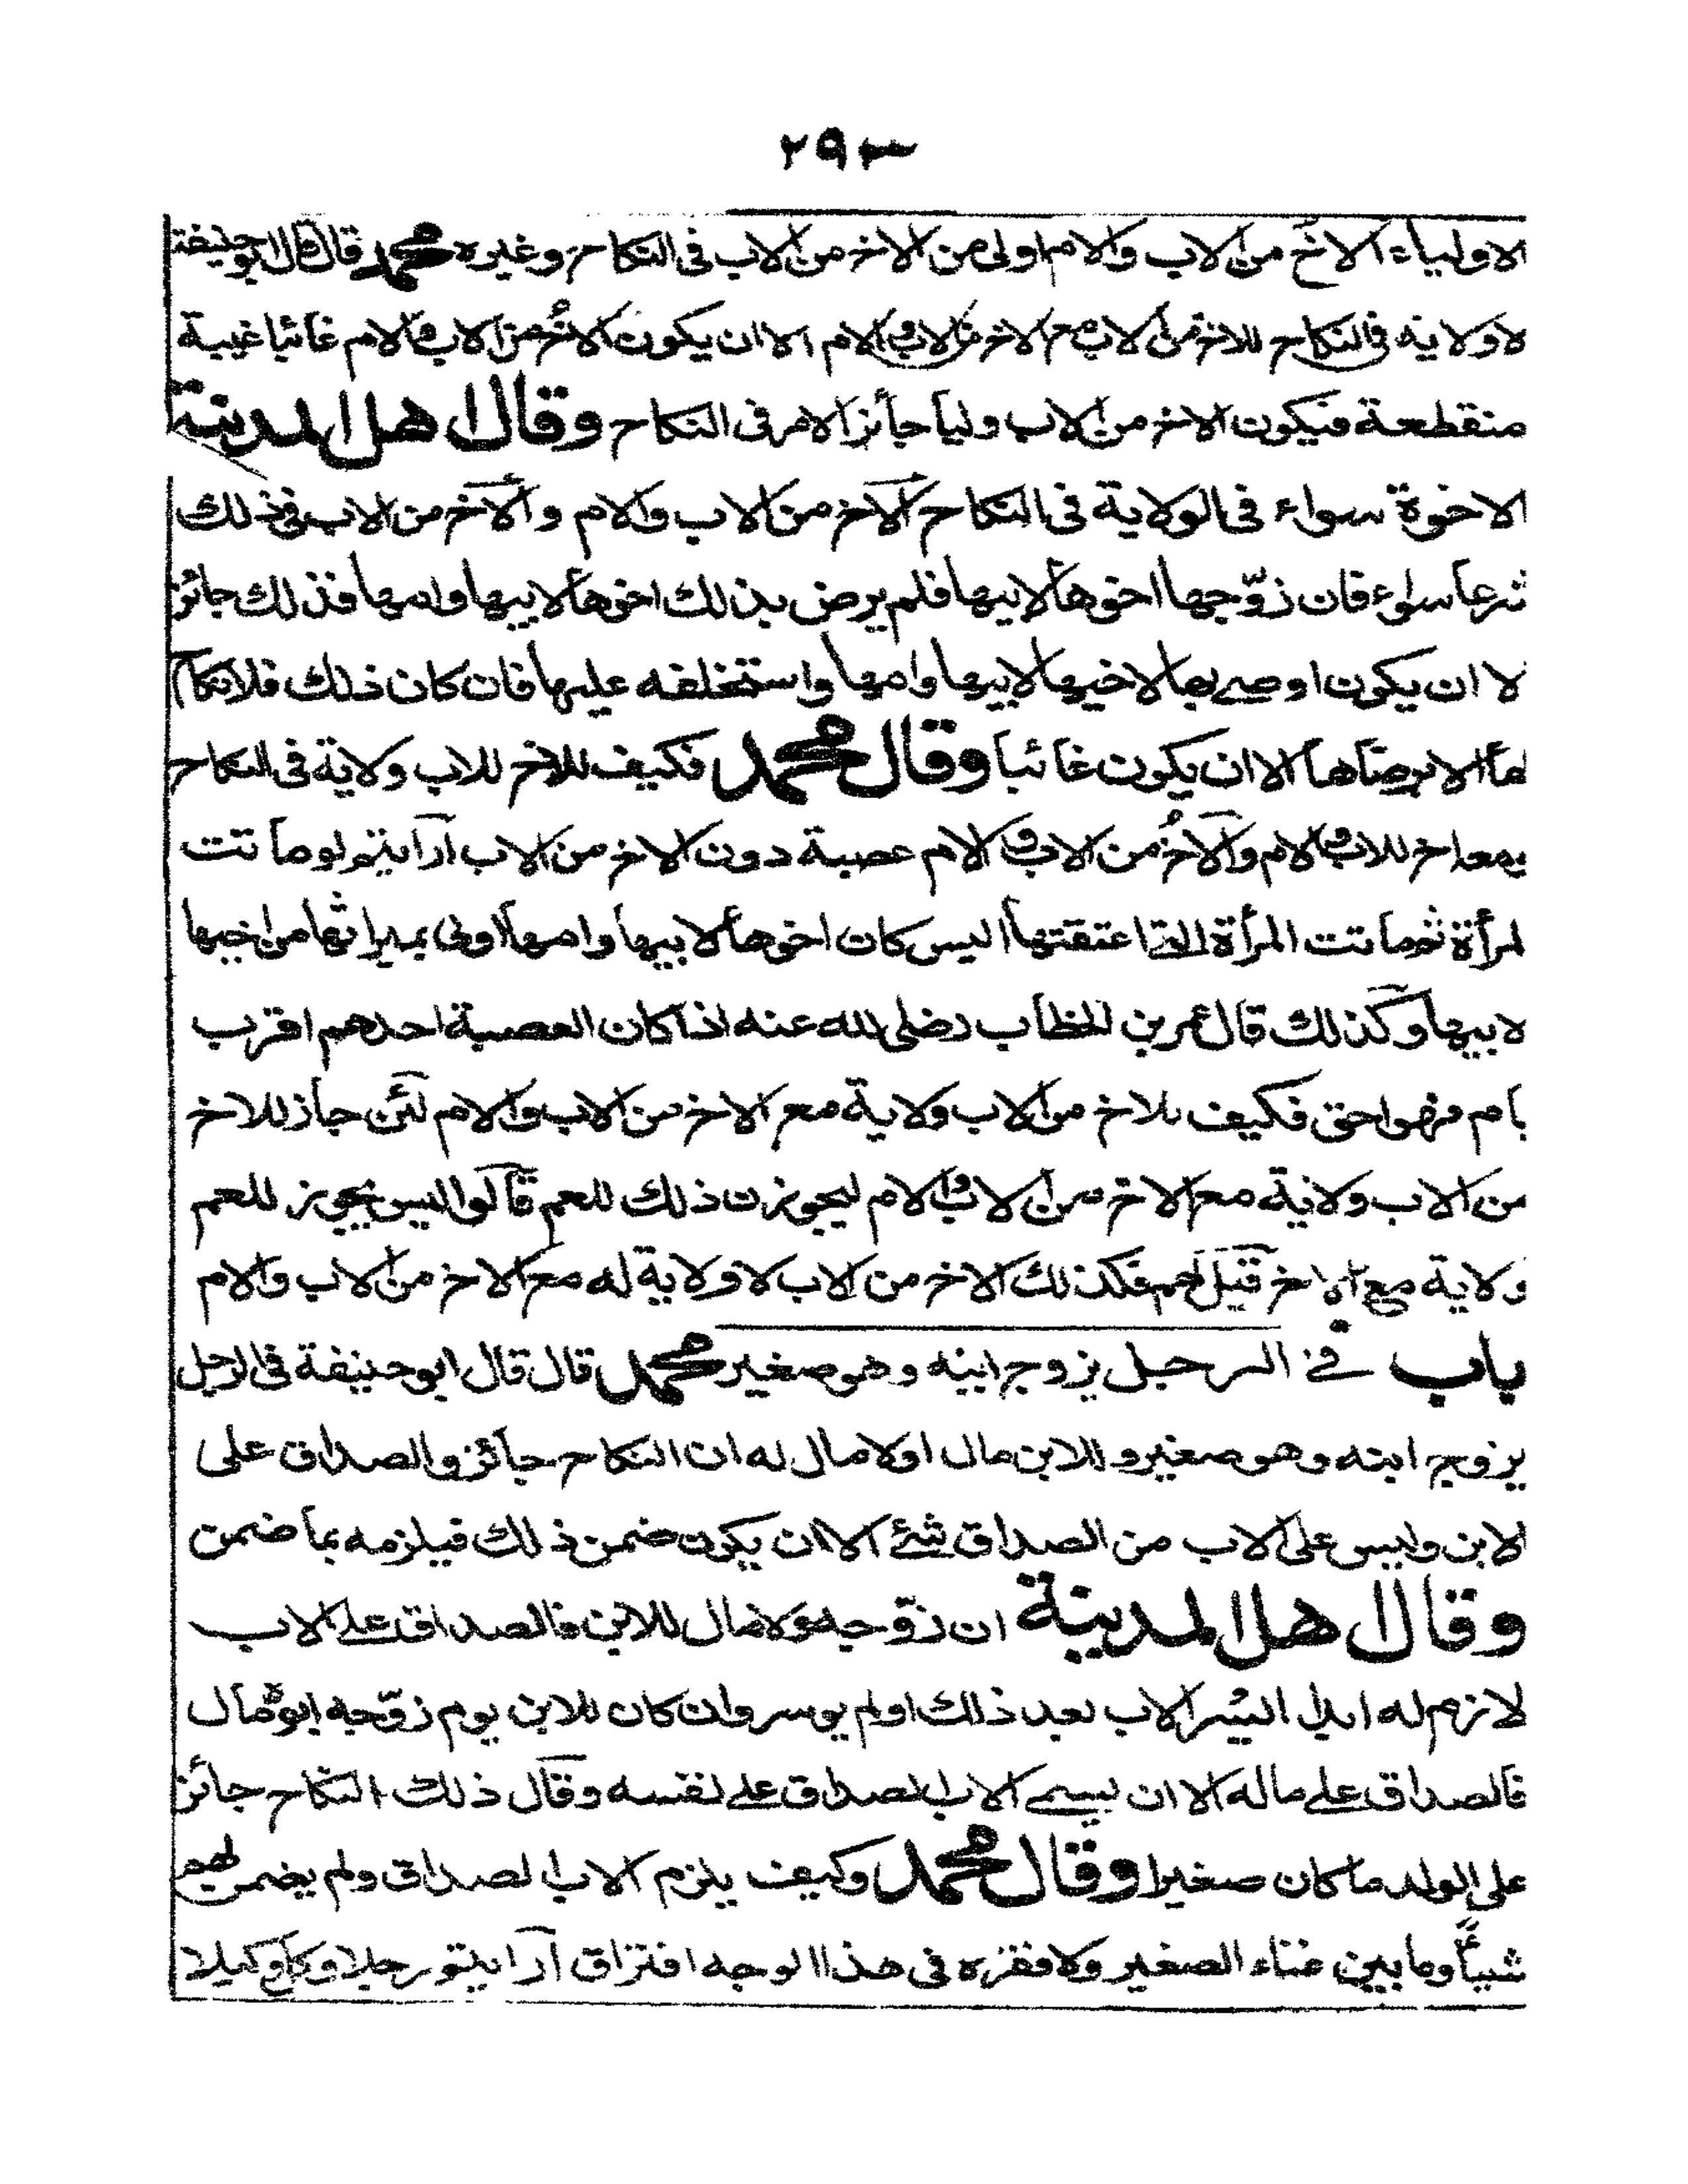 ٢٩٣
الاولياء الاخ من الاب والام اولى من الاخ من الاب فى النكاح وغيره محمد قال قال ابوحنيفة
لا ولاية فى النكاح للاخ من الاب مع الاخ من الاب والام الا ان يكون الاخ من الاب والام غائبا غيبة
منقطعة فيكون الاخ من الاب وليا جائز الامر فى النكاح وقال اهل المدينة
الاخوة سواء فى الولاية فى النكاح الاخ من الاب والام والاخ من الاب فى ذلك
شرعا سواء فان زوّجها اخوها لابيها فلم يرض بذلك اخوها لابيها وامها فذلك جائز
لا ان يكون اوصى بها لاخيها لابيها وامها واستخلفه عليها فان كان ذلك فلا نكاح
لها الا برضاها الا ان يكون غائبا وقال محمد فكيف للاخ للاب ولاية فى النكاح
مع اخ للاب والام والاخ من الاب والام عصبة دون الاخ من الاب أرايتم لو ماتت
لمرأة ثم ماتت المرأة التى اعتقتها اليس كان اخوها لابيها وامها اولى بميراثها من اخيها
لابيها وكذلك قال عمر بن الخطاب رضى الله عنه اذا كان العصبة احدهم اقرب
بام فهو احق فكيف للاخ من الاب ولاية مع الاخ من الاب والام لئن جاز للاخ
من الاب ولاية مع الاخ من الاب والام ليجوزن ذلك للعم قالوا اليس يجوز للعم
ولاية مع الاخ قيل لهم فكذلك الاخ من الاب لا ولاية له مع الاخ من الاب والام
باب فى الرجل يزوج ابنه وهو صغير محمد قال قال ابوحنيفة فى الرجل
يزوج ابنه وهو صغير وللابن مال اولا مال له ان النكاح جائز والصداق على
الابن وليس على الاب من الصداق شئ الا ان يكون ضمن ذلك فيلزمه بما ضمن
وقال اهل المدينة ان زوّجه ولا مال للابن فالصداق على الاب
لازم له ابدا ايسر الاب بعد ذلك اولم يوسر وان كان للابن يوم زوّجه ابوه مال
فالصداق على ماله الا ان يسمى الاب الصداق على نفسه وقال ذلك النكاح جائز
على الولد ما كان صغيرا وقال محمد وكيف يلزم الاب الصداق ولم يضمن لهم
شيئاً وما بين غناء الصغير ولا فقره فى هذا الوجه افتراق أرايتو رجلا وكل وكيلا